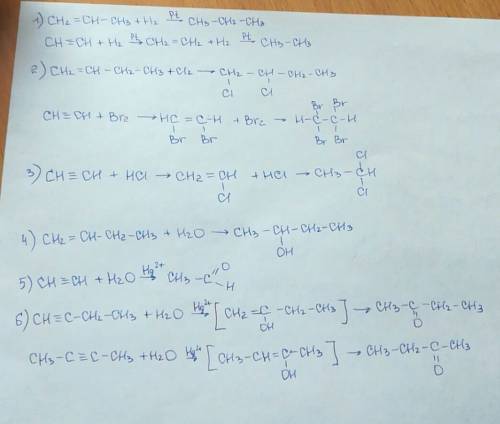 1) CH₂=CH-CH₃ + H₂ →Pt CH₃-CH₂-CH₃
CH≡CH + H₂ →Pt CH₂=CH₂ + H₂ →Pt CH₃-CH₃
2) CH₂=CH-CH₂-CH₃ + Cl₂ → CH₂-CH-CH₂-CH₃
Cl Cl
Br Br
CH≡CH + Br₂ → HC=C-H + Br₂ → H-C-C-H
Br Br Br Br
Cl
3) CH≡CH + HCl → CH₂=CH + HCl → CH₃-CH
Cl Cl
4) CH₂=CH-CH₂-CH₃ + H₂O → CH₃-CH-CH₂-CH₃
OH
5) CH≡CH + H₂O →Hg²⁺ CH₃-C=O
H
6) CH≡C-CH₂-CH₃ + H₂O →Hg²⁺ [CH₂=C-CH₂-CH₃] → CH₃-C-CH₂-CH₃
OH O
CH₃-C≡C-CH₃ + H₂O →Hg²⁺ [CH₃-CH=C-CH₃] → CH₃-CH₂-C-CH₃
OH O